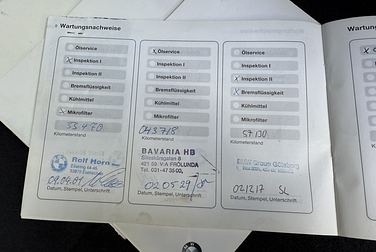 Wartungsnachweise
Ölservice
X Inspektion I
Inspektion II
Bremsflüssigkeit
Kühlmittel
X Mikrofilter
Kilometerstand
Rolf Horn
Datum, Stempel, Unterschrift
X Ölservice
Inspektion I
Inspektion II
Bremsflüssigkeit
Kühlmittel
Mikrofilter
043718
Kilometerstand
BAVARIA HB
421 59 V:A FRÖLUNDA
Tel. 031-47 35 00
02 05 29
Datum, Stempel, Unterschrift
Ölservice
Inspektion I
X Inspektion II
X Bremsflüssigkeit
Kühlmittel
Mikrofilter
57130
Kilometerstand
021217
Datum, Stempel, Unterschrift